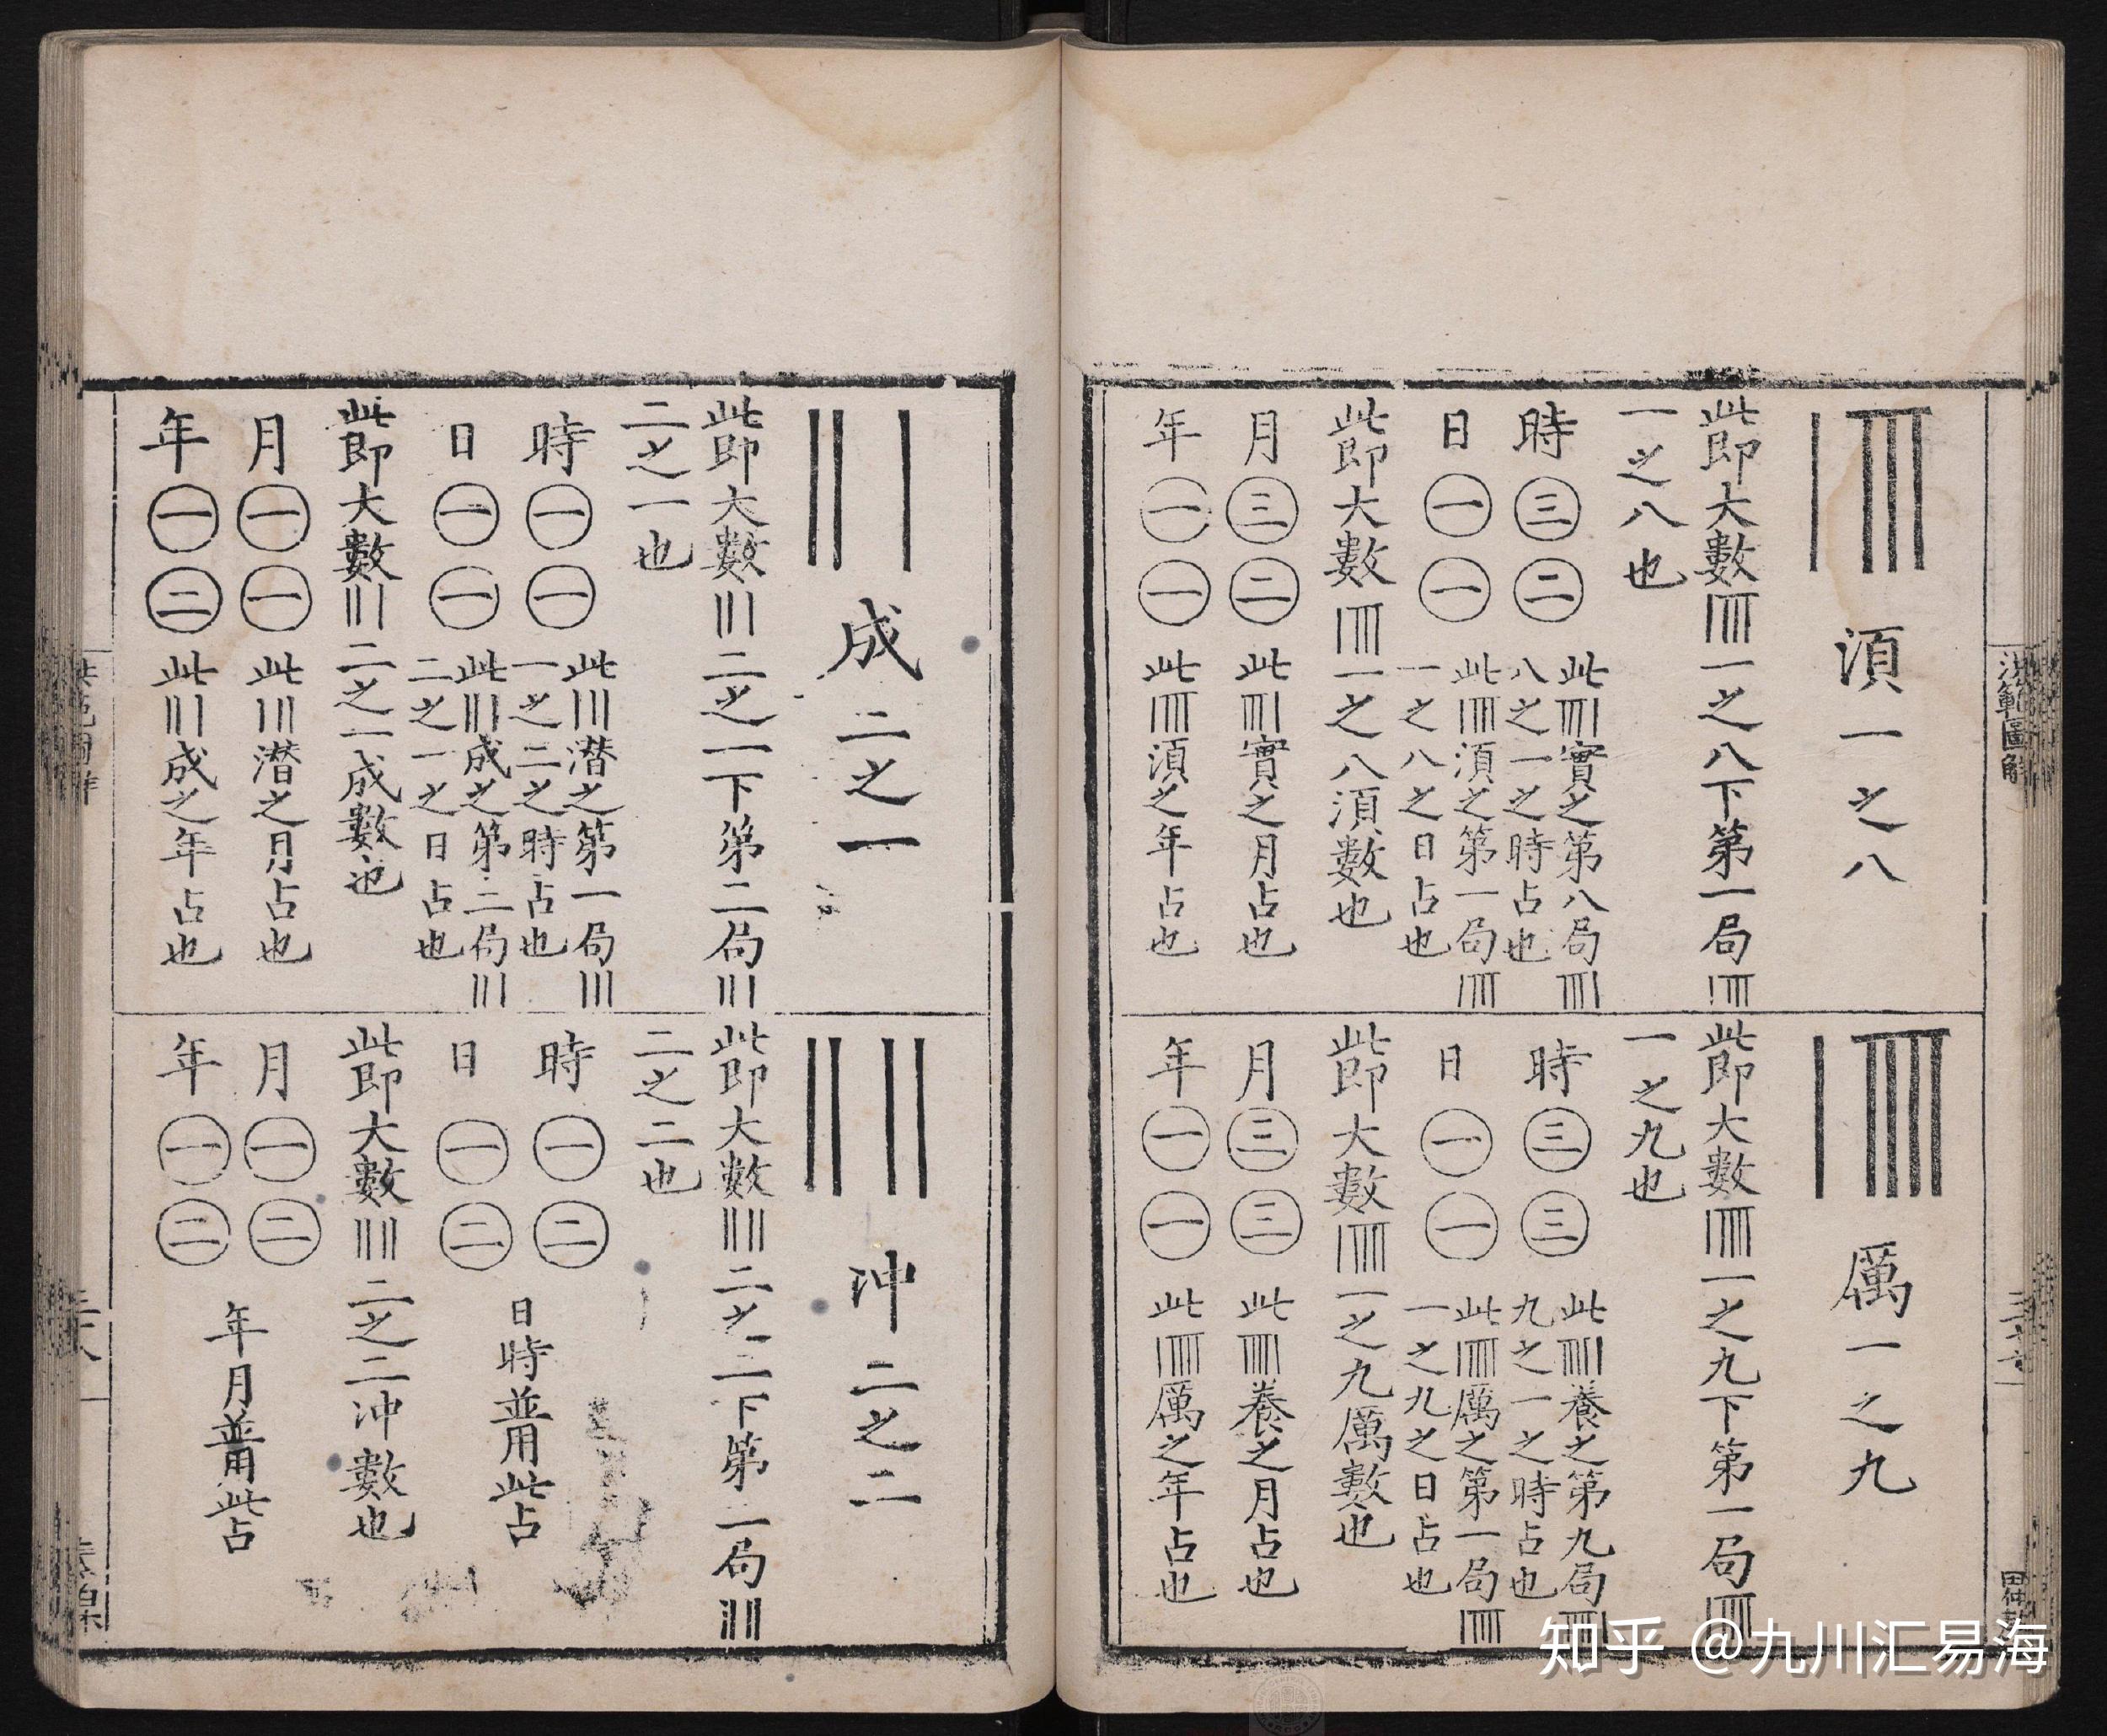 湏一之八
此即大數𝍠一之八下第一局
一之八也
時㊂㊁此實之第八局
八之一一之時占也
日㊀㊀此湏之第一局
一之八之日占也
此即大數一之八湏數也
月㊂㊁此實之月占也
年㊀㊀此湏之年占也
厲一之九
此即大數一之九下第一局
一之九也
時㊂㊂此養之第九局
九之一一之時占也
日㊀㊀此厲之第一局
一之九之日占也
此即大數一之九厲數也
月㊂㊂此養之月占也
年㊀㊀此厲之年占也
洪範圖解
成二之一
此即大數〢〡二之一下第二局
二之一也
時㊀㊀此潜之第一局
一之二之時占也
日㊀㊀此成之第二局
二之一之日占也
此即大數二之一成數也
月㊀㊀此潜之月占也
年㊀㊁此成之年占也
冲二之二
此即大數二之二下第二局
二之二也
時㊀㊁
日㊀㊁
日時普用此占
此即大數二之二冲數也
月㊀㊁
年㊀㊁
年月普用此占
知乎 @九川汇易海